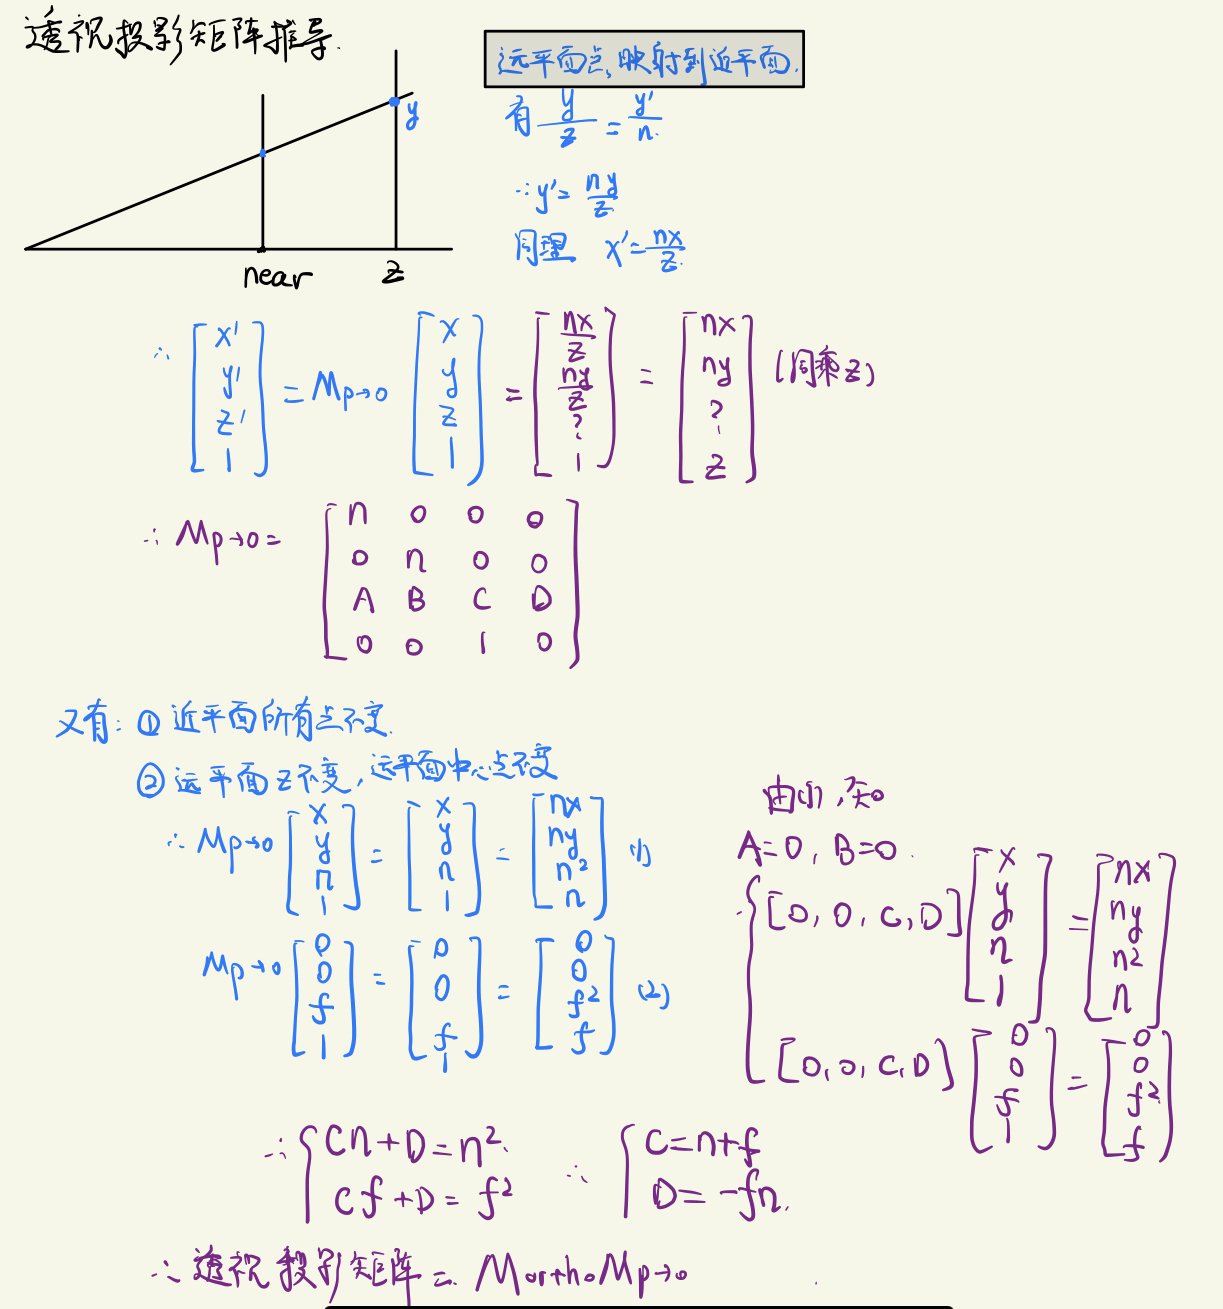 透视投影矩阵推导.
远平面点,映射到近平面.
有 y/z = y'/n.
y
∴ y' = ny/z
同理 x' = nx/z.
near z
∴ [x' y' z' 1] = Mp→o [x y z 1] = [nx/z ny/z ? 1] = [nx ny ? z] (同乘z)
∴ Mp→o =
n 0 0 0
0 n 0 0
A B C D
0 0 1 0
又有: ① 近平面所有点不变.
② 远平面z不变,远平面中心点不变
∴ Mp→o [x y n 1] = [x y n 1] = [nx ny n² n] (1)
Mp→o [0 0 f 1] = [0 0 f 1] = [0 0 f² f] (2)
由(1),知
A=0, B=0.
∴ { [0, 0, C, D] [x y n 1] = [nx ny n² n]
[0, 0, C, D] [0 0 f 1] = [0 0 f² f]
∴ { Cn+D=n². ∴ { C=n+f
Cf+D=f² D=-fn.
∴ 透视投影矩阵 = Mortho Mp→o